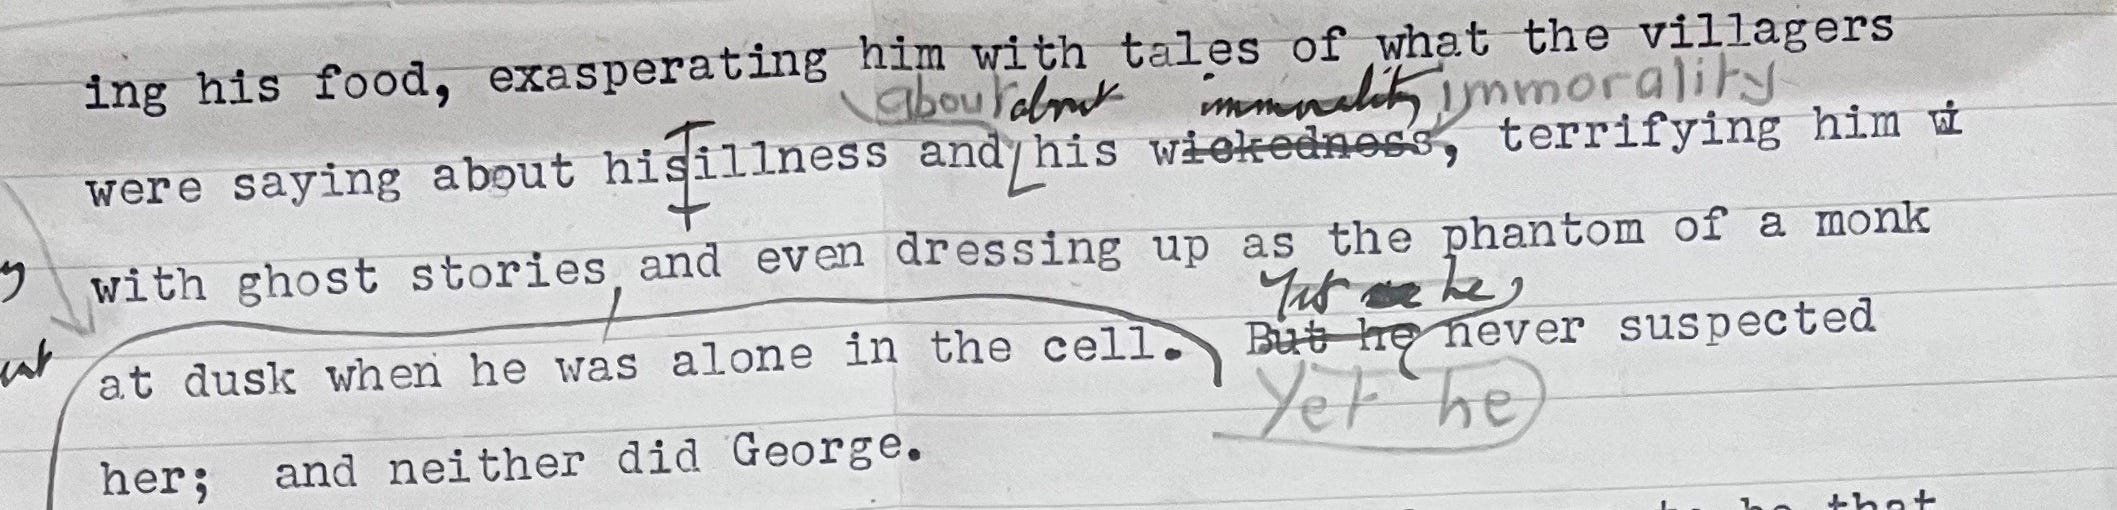 ing his food, exasperating him with tales of what the villagers
about about immorality immorality
were saying about his illness and his wickedness, terrifying him wi
with ghost stories, and even dressing up as the phantom of a monk
Yet he
at dusk when he was alone in the cell. But he never suspected
Yet he
her; and neither did George.
to be that